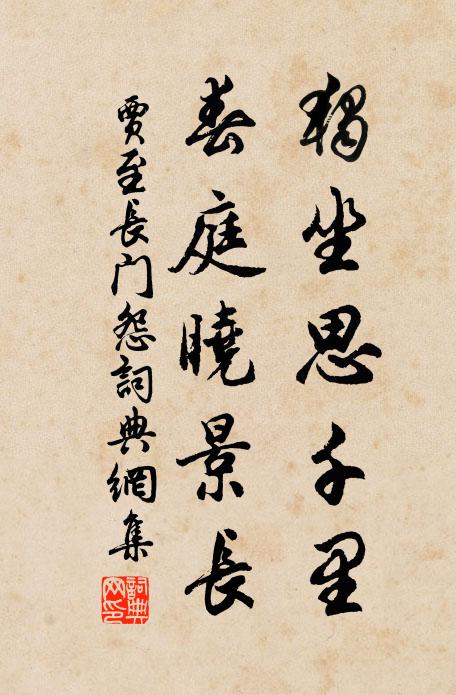 獨坐思千里
春庭曉景長
賈至長門怨詞典網集
詞典网印